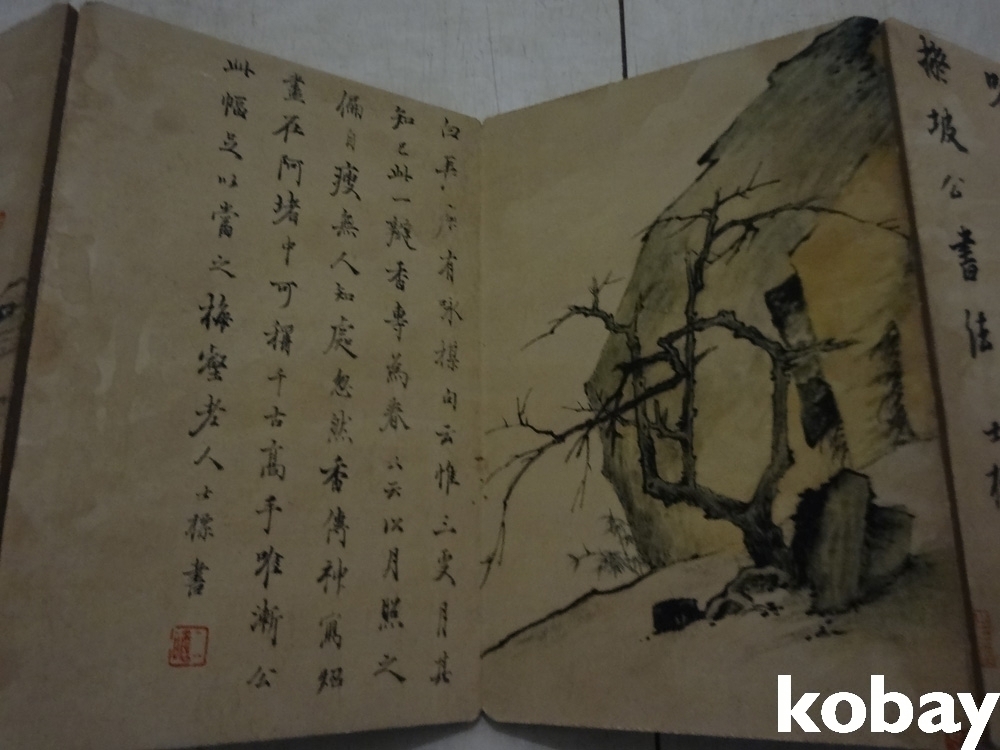 坡公書法
白有詠楳句云惟三更月其
知己此一瓣香專為春又云以月照之
偏自瘦無人知處忽然香傳神寫炤
畫在阿堵中可稱千古高手唯漸公
此幅足以當之梅壑老人士標書
kobay